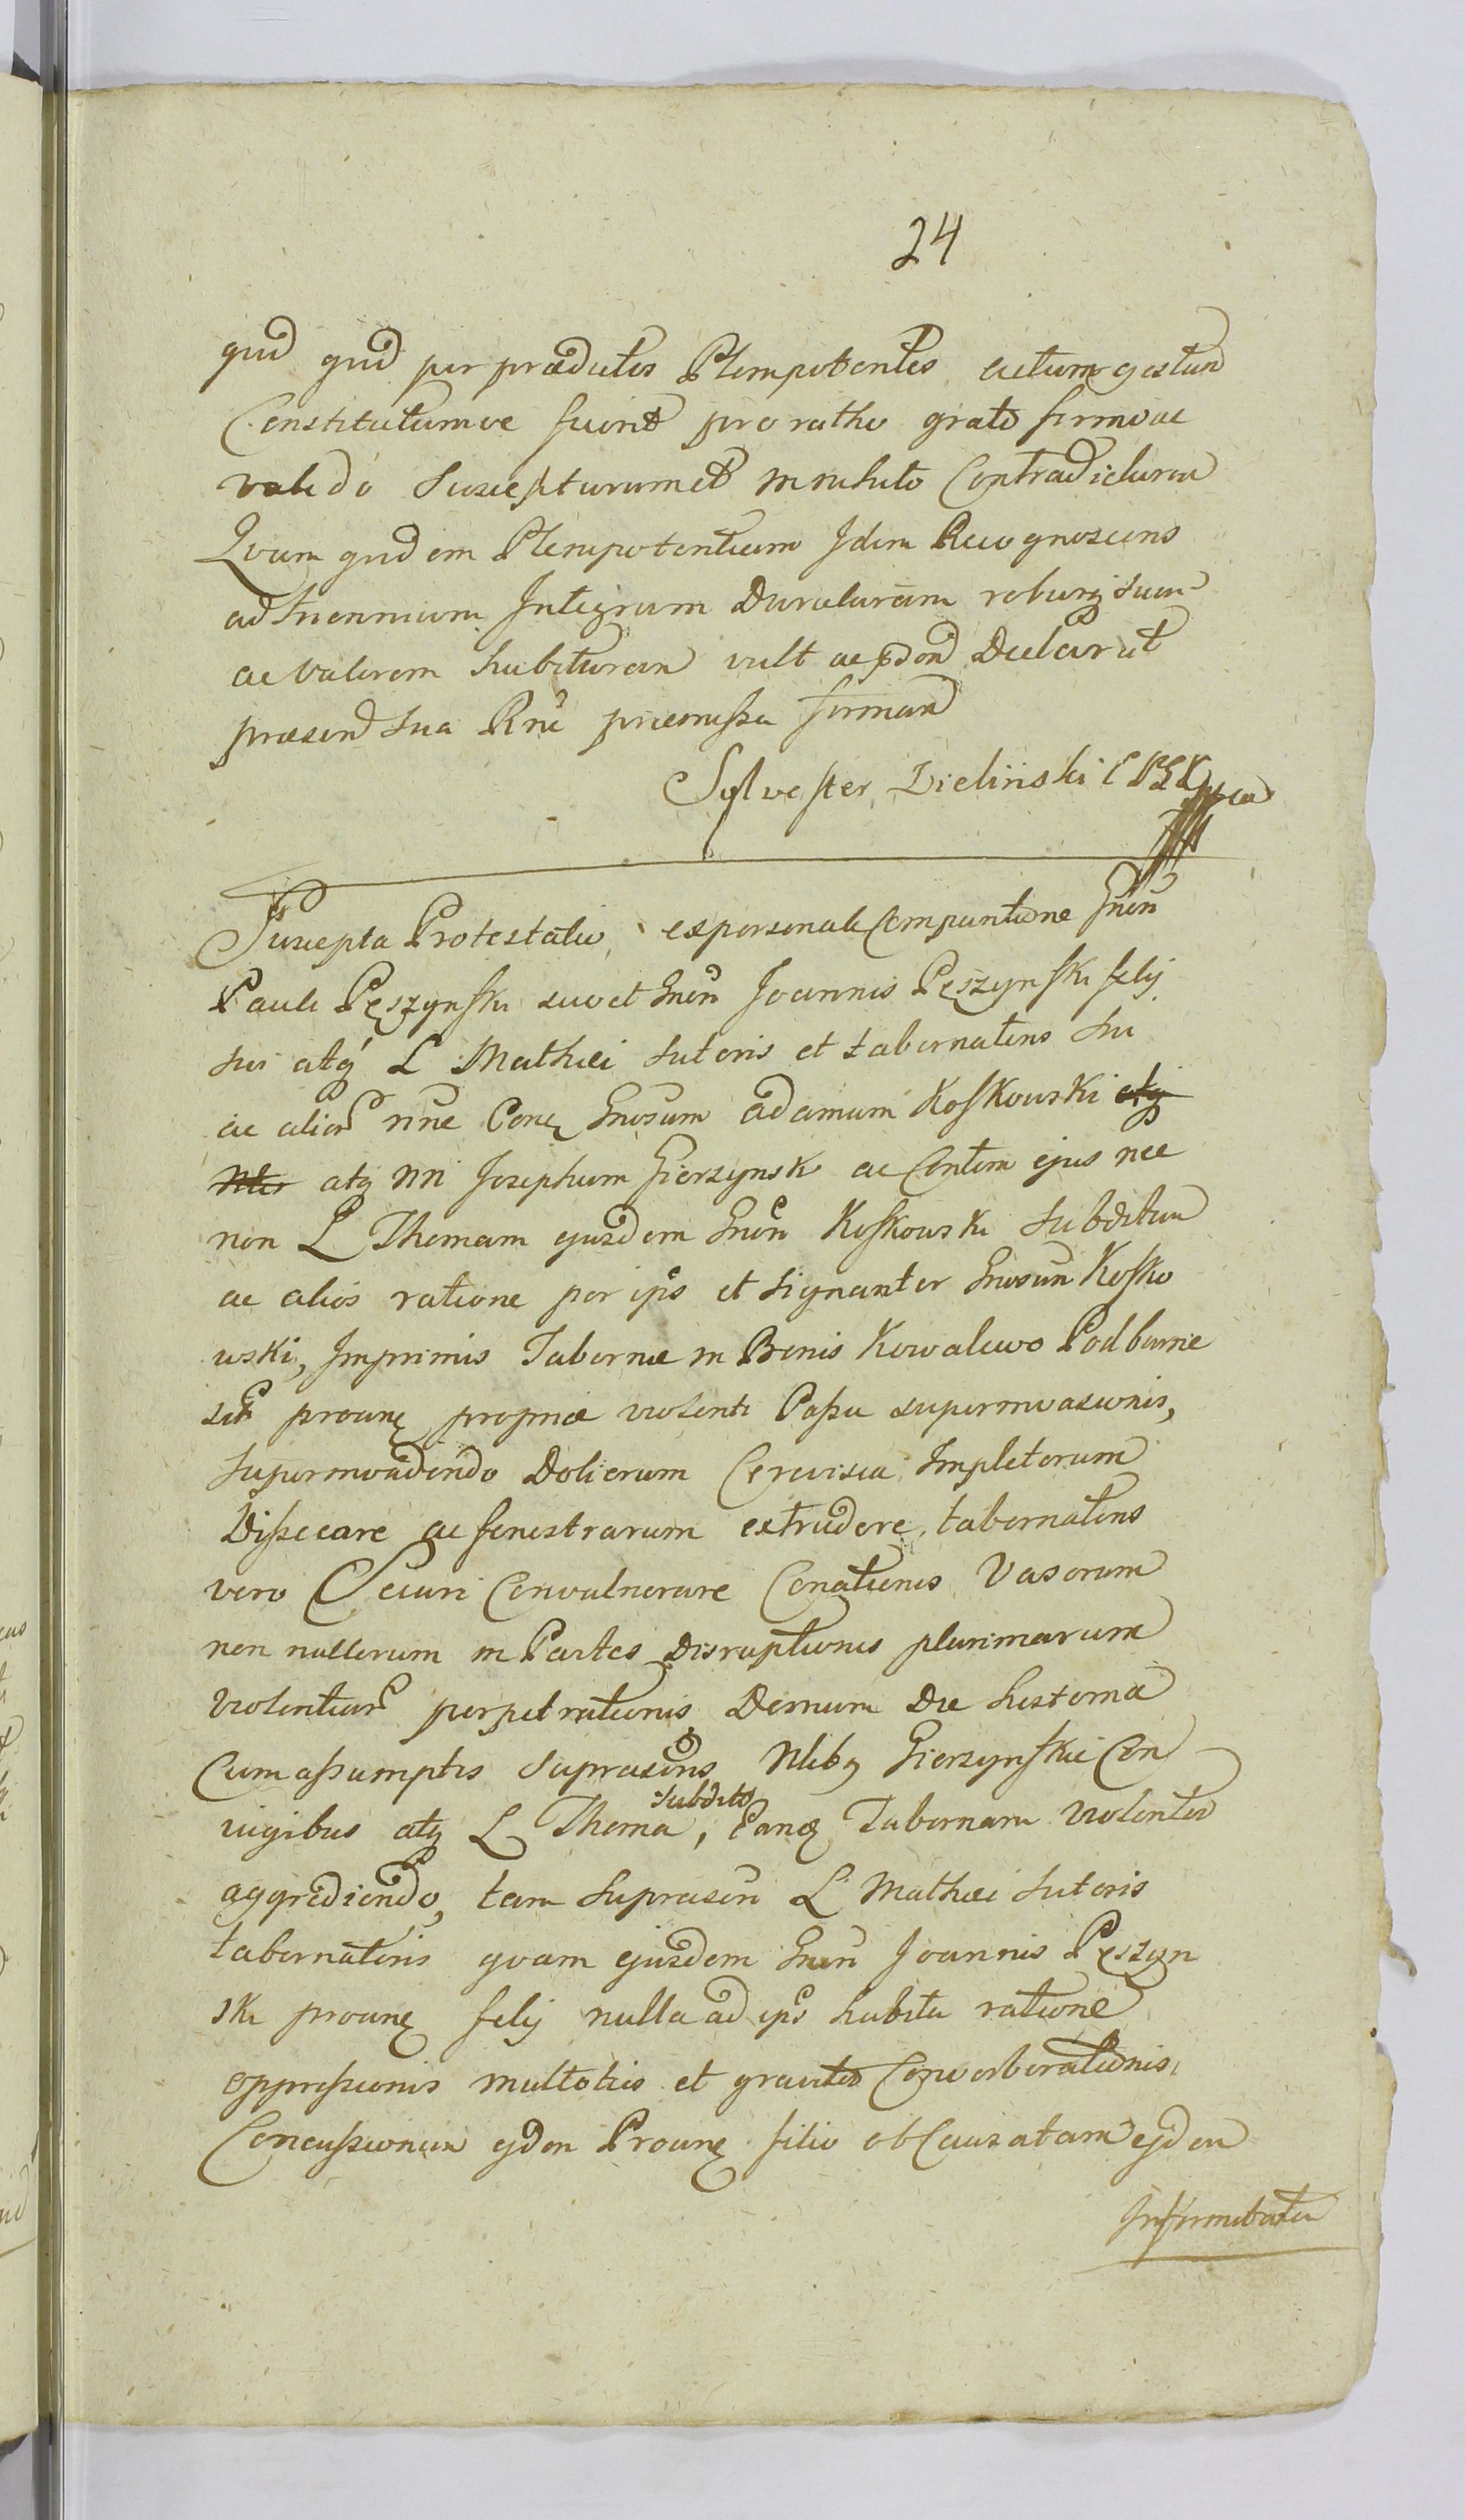 24
quid quid per praedictos Plempotentes actum gestum
Constitutumve fuerit pro ratho grato firmo ac
valido Suscepturum et in nihilo Contradicturum
Qvam quidem Plenipotentiam Idem Recognoscens
ad triennium Integrum Duraturam roburq suum
ac valorem habituram vult ac Declarat
praesen sua Rne praemissa firman
Sylvester Zieliński
Suscepta Protestatio ex personali Comparitione Gnen
Pauli Pęszynski suo et Gnen Joannis Pęszynski filij
sui atq L Mathei sutoris et tabernatoris sui
ac alior nne Conq Gnosum adamum Koskowski atq
Nter atq NN Josephum Gierzynski ac Contem ejus nec
non L Thomam ejusdem Gnen Koskowski subditum
ac alios ratione per ips et signanter Gnosum Kosko
wski, Imprimis Tabernae in Bonis Kowalewo Podborne
sit proanq propriae violenti Passu superinvasionis,
superinvadendo Doliorum Cerevisia Impletorum
Dissecare ac fenestrarum extrudere, tabernatoris
vero Securi Convulnerare Conationis Vasorum
non nullorum in Partes Disruptionis plurimarum
violentiar perpetrationis, Demum Die hesterna
Cum assumptis suprascris Nlibq Gierzynskie Con
iugibus atq L Thoma subdito, Eanq Tabernam violenter
aggrediendo, tam suprascri L Mathei sutoris
tabernatoris qvam ejusdem Gnen Joannis Pęszyn
ski proanq filij nulla ad ips habita ratione
oppressionis multoties et graviter Converberationis,
Concussionem ejdem Proanq filio ob Causatam ejdem
Infirmitatem